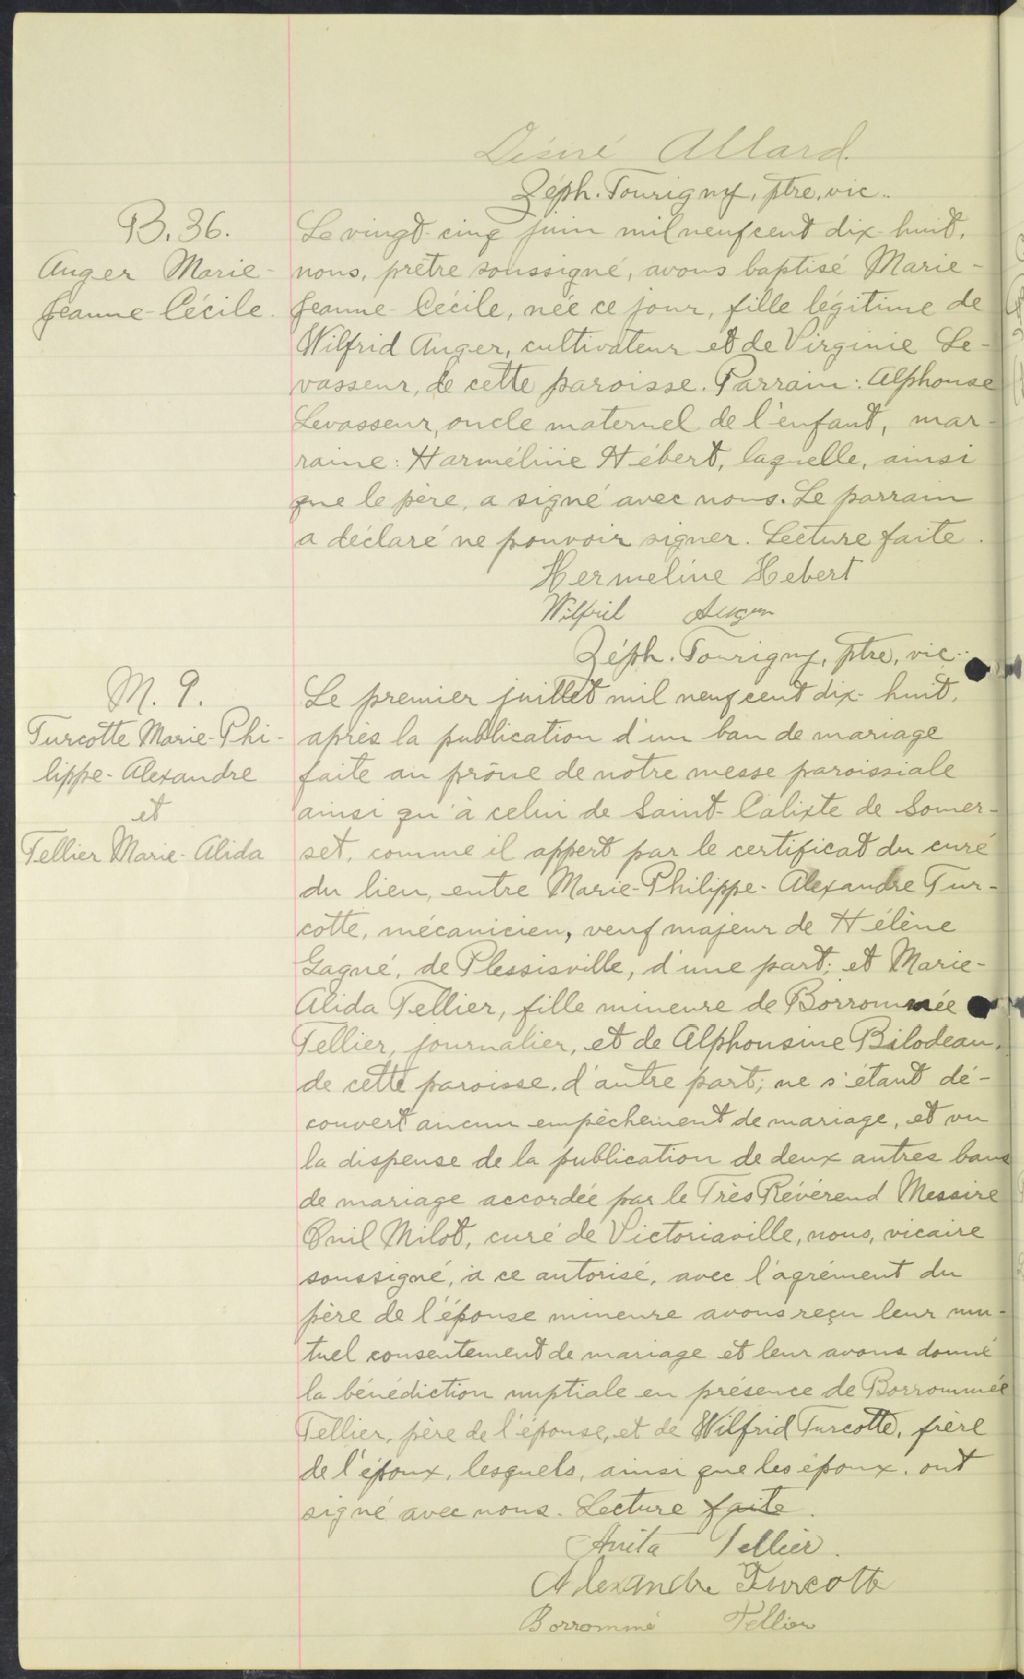 Désiré Allard.
Zéph. Tourigny, ptre, vic..
B. 36.
Auger Marie-
Jeanne-Cécile.
Le vingt-cinq juin mil neuf cent dix-huit,
nous, prêtre soussigné, avons baptisé Marie-
Jeanne-Cécile, née ce jour, fille légitime de
Wilfrid Auger, cultivateur et de Virginie Le-
vasseur, de cette paroisse. Parrain: Alphonse
Levasseur, oncle maternel de l'enfant, mar-
raine: Harméline Hébert, laquelle, ainsi
que le père, a signé avec nous. Le parrain
a déclaré ne pouvoir signer. Lecture faite.
Hermeline Hebert
Wilfrid Auger
Zéph. Tourigny, ptre, vic..
M. 9.
Turcotte Marie-Phi-
lippe-Alexandre
et
Tellier Marie-Alida
Le premier juillet mil neuf cent dix-huit,
après la publication d'un ban de mariage
faite au prône de notre messe paroissiale
ainsi qu'à celui de Saint-Calixte de Somer-
set, comme il appert par le certificat du curé
du lieu, entre Marie-Philippe-Alexandre Tur-
cotte, mécanicien, veuf majeur de Hélène
Gagné, de Plessisville, d'une part; et Marie-
Alida Tellier, fille mineure de Borrommée
Tellier, journalier, et de Alphonsine Bilodeau,
de cette paroisse, d'autre part; ne s'étant dé-
couvert aucun empêchement de mariage, et vu
la dispense de la publication de deux autres bans
de mariage accordée par le Très Révérend Messire
Onil Milot, curé de Victoriaville, nous, vicaire
soussigné, à ce autorisé, avec l'agrément du
père de l'épouse mineure avons reçu leur mu-
tuel consentement de mariage et leur avons donné
la bénédiction nuptiale en présence de Borrommée
Tellier, père de l'épouse, et de Wilfrid Turcotte, frère
de l'époux, lesquels, ainsi que les époux, ont
signé avec nous. Lecture faite.
Anita Tellier.
Alexandre Turcotte
Borrommé Tellier